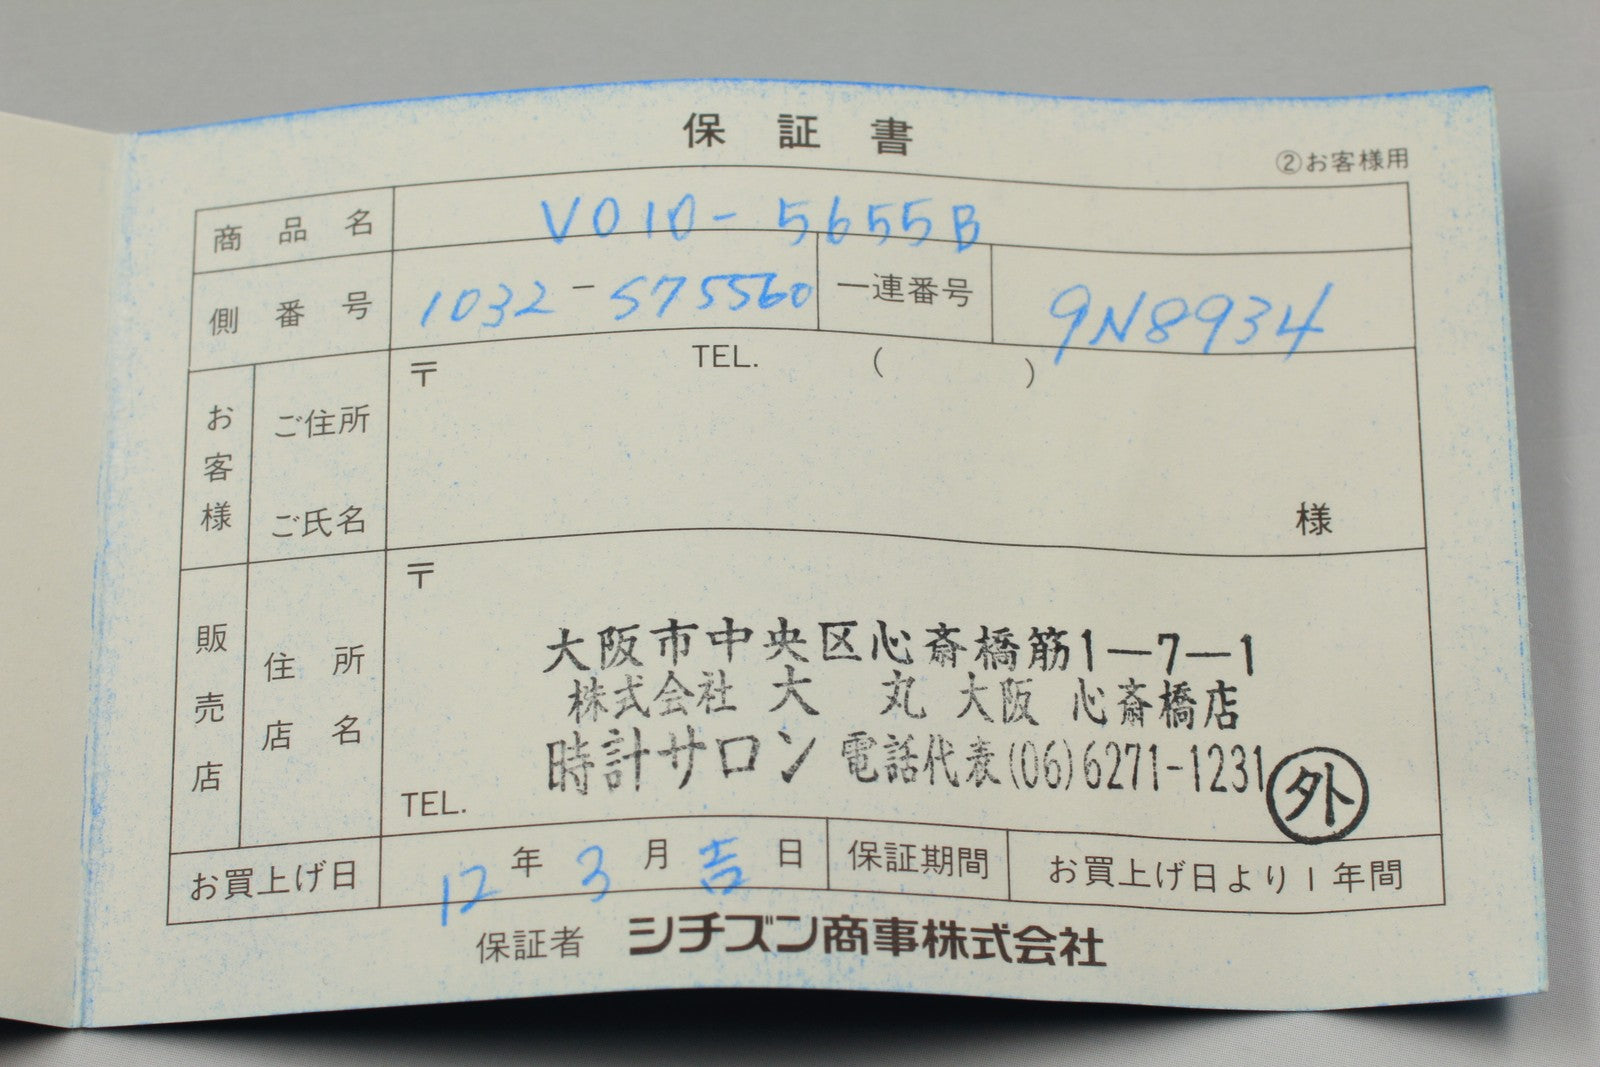 保証書
②お客様用
商品名 V010-5655B
側番号 1032-S75560 一連番号 9N8934
お客様
ご住所 〒 TEL. ( )
ご氏名 様
販売店
住所 〒
店名
大阪市中央区心斎橋筋1-7-1
株式会社 大 丸 大阪 心斎橋店
時計サロン 電話代表(06)6271-1231 外
TEL.
お買上げ日 12年3月吉日 保証期間 お買上げ日より1年間
保証者 シチズン商事株式会社